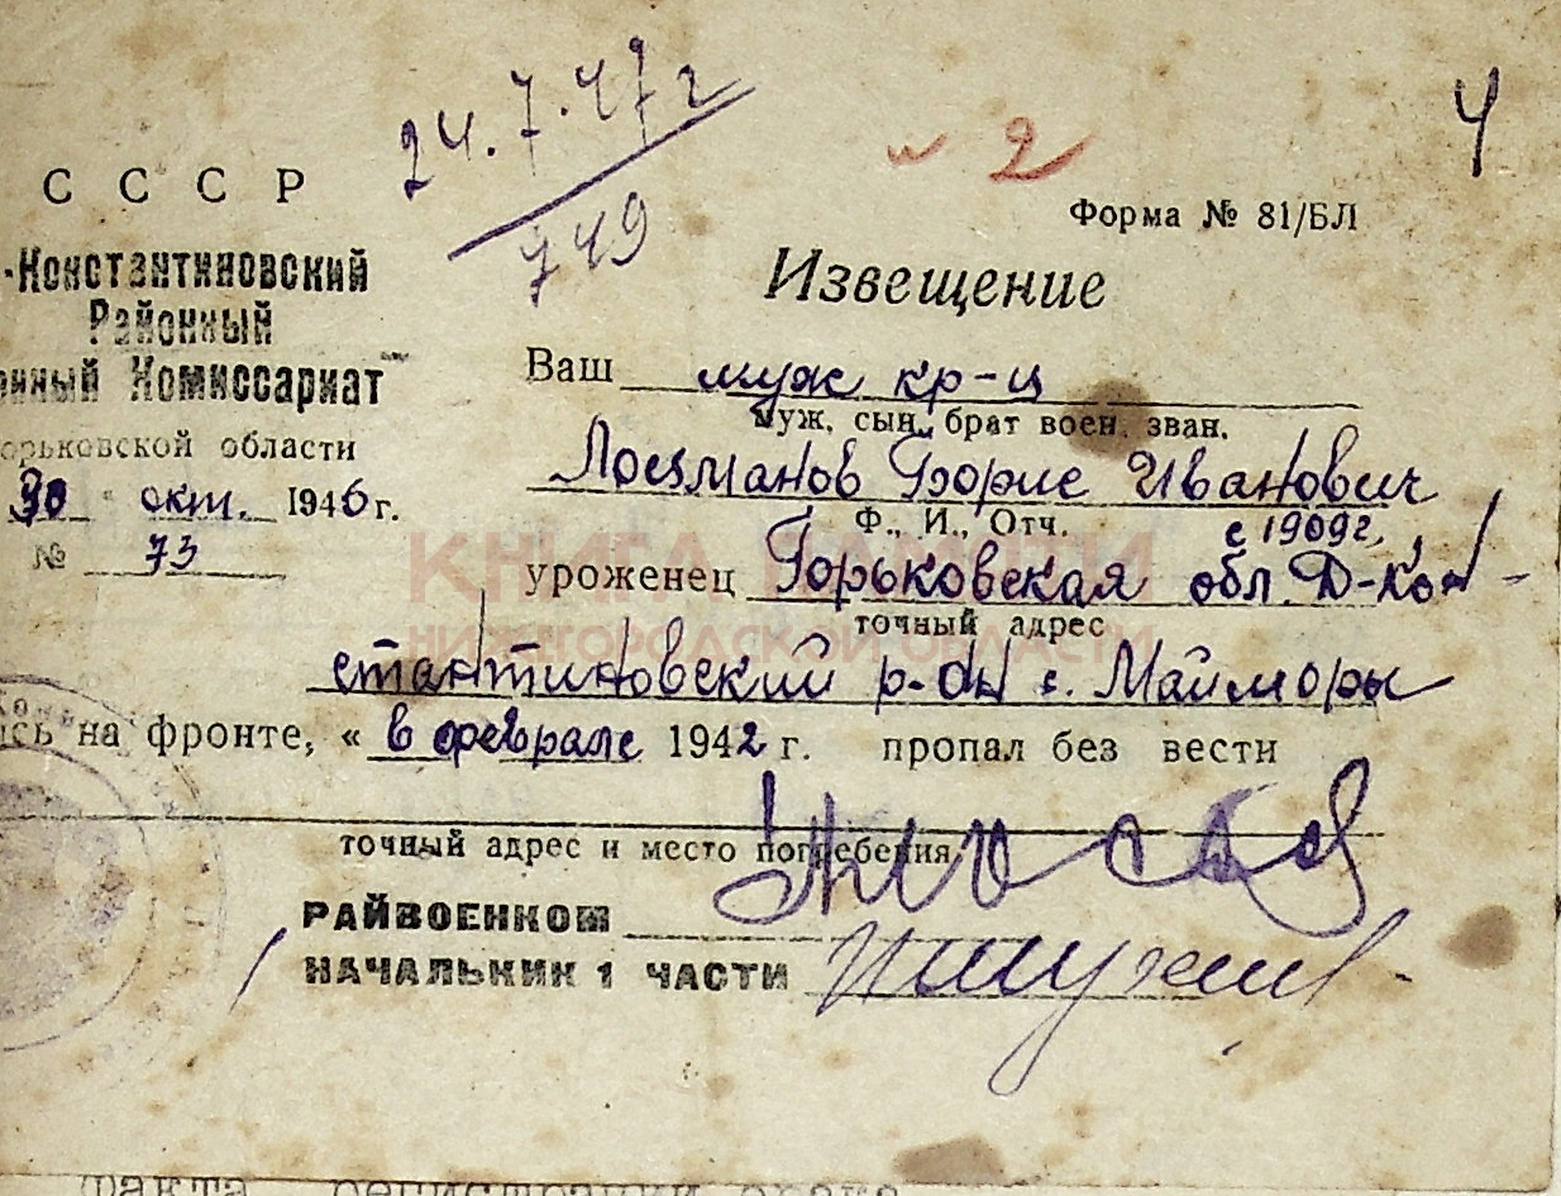 24.7.47г
749
2
4
СССР
Форма № 81/БЛ
-Константиновский
Районный
енный Комиссариат
Извещение
Ваш муж кр-ц
муж, сын, брат воен. зван.
орьковской области
Лоцманов Борис Иванович
30 " окт. 1946 г.
Ф., И., Отч. с 1909 г.
№ 73
уроженец Горьковская обл. Д-Кон-
точный адрес
стантиновский р-он с. Майморы
ись на фронте, « в феврале 1942 г. пропал без вести
точный адрес и место погребения
РАЙВОЕНКОМ
НАЧАЛЬНИК 1 ЧАСТИ
КНИГА ПАМЯТИ
НИЖЕГОРОДСКОЙ ОБЛАСТИ
факта регистрации брака